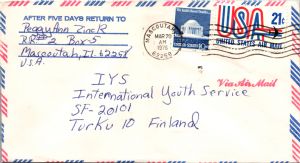 AFTER FIVE DAYS RETURN TO
Peggy Ann Zinck
RR #2 Box 5
Mascoutah, Il 62258
U.S.A.
MASCOUTAH, IL
MAR 20
AM
1976
62258
USA 21c
UNITED STATES AIR MAIL
Via Air Mail
IYS
International Youth Service
SF-20101
Turku 10 Finland